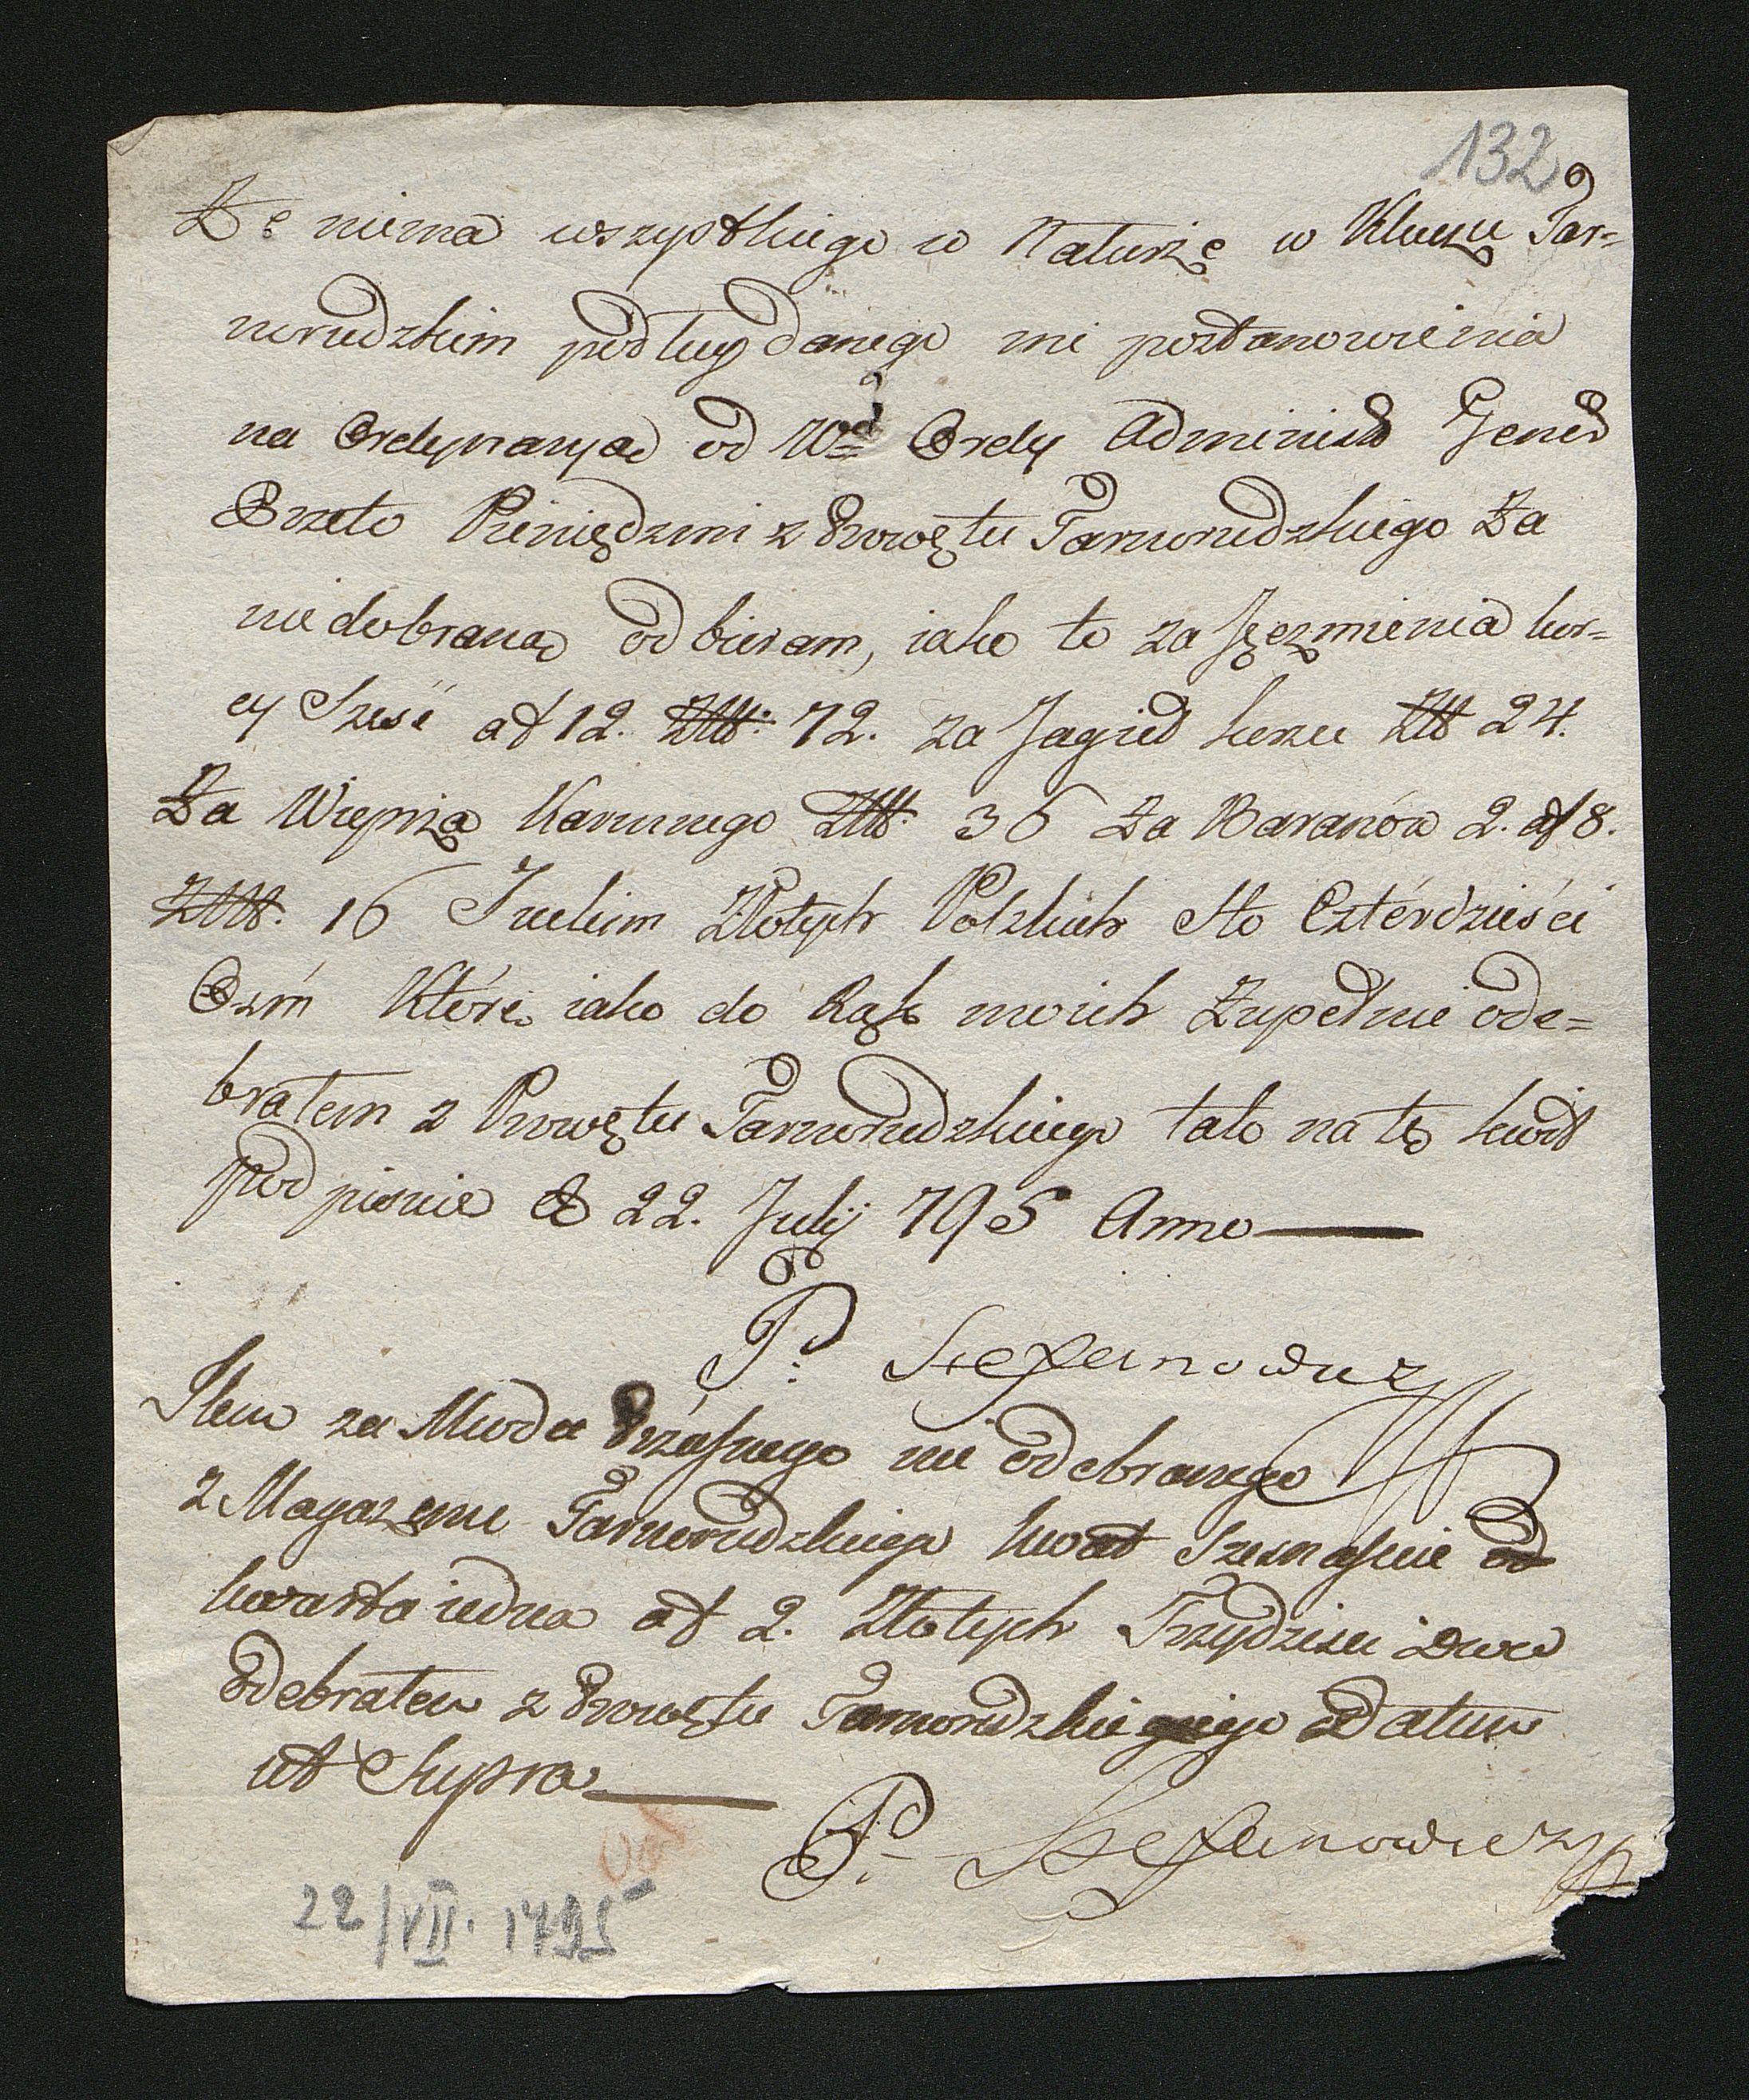 132
Że niema wszystkiego w Naturze w Kluczu Tar=
norudzkim podług danego mi postanowienia
na Ordynaryą od Wo Ordy Administ Gener
Przeto Pieniędzmi z Prowętu Tarnorudzkiego Za
niedobraną odbieram, iako to za Jęczmienia kor=
cy Sześć at 12. Złt: 72. za Jagieł korzec Złt 24.
Za Wieprza Karmnego Złt. 36 Za Baranów 2. at 8.
Złt. 16 Juelim Złotych Polskich Sto Czterdzieści
Ośm Które iako do Rąk moich Zupełnie ode=
brałem z Prowętu Tarnorudzkiego tak na tę kwit
podpisuię D 22. Julij 795 Anno
P: Stefanowicz
Item za Miodu Przaśnego nie odebranego
z Magazynu Tarnorudzkiego kwart Szesnaście od
kwarta iedna at 2. Złotych Trzydzieści Dwa
Odebrałem z Prowętu Tarnorudzkiego Datum
ut Supra
P: Stefanowicz
22/VII. 1795